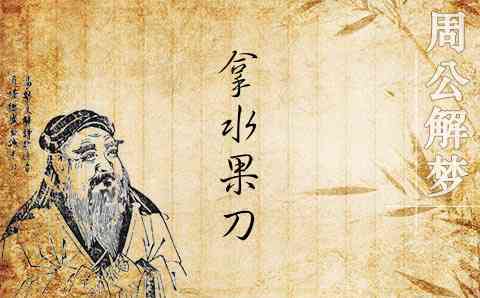 周公解梦
拿水果刀